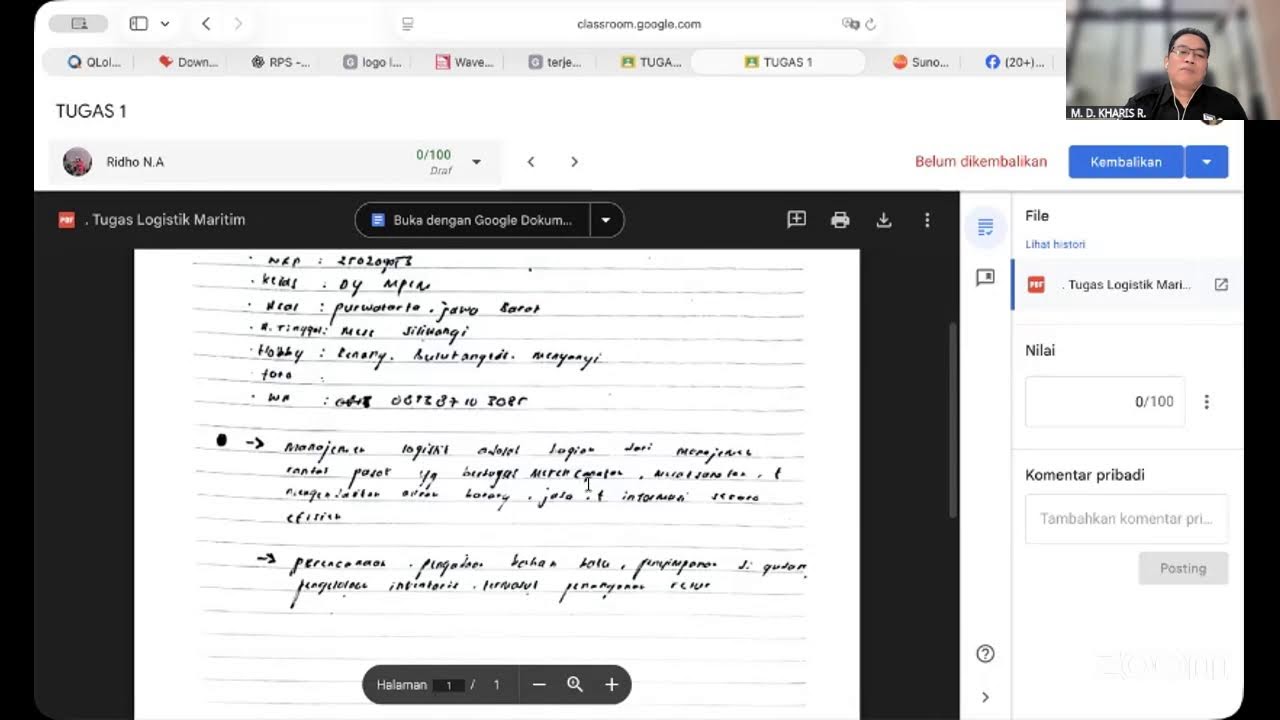 classroom.google.com
QLol...
Down...
RPS -...
logo l...
Wave...
terje...
TUGA...
TUGAS 1
Suno...
(20+)...
M. D. KHARIS R.
TUGAS 1
Ridho N.A
0/100
Draf
Belum dikembalikan
Kembalikan
PDF
. Tugas Logistik Maritim
Buka dengan Google Dokum...
File
Lihat histori
PDF
. Tugas Logistik Mari...
Nilai
0/100
Komentar pribadi
Tambahkan komentar pri...
Posting
. NRP :
. kelas : D4
. Asal : purwakarta . jawa Barat
. A. Tinggal : Mess Siliwangi
. Hobby : Renang . Bulutangkis . menyanyi
. foto :
. WA :
→ Manajemen logistik adalah bagian dari manajemen
rantai pasok yg bertugas merencanakan , , &
aliran barang , jasa & informasi secara
efisien
→ perencanaan . pengadaan bahan baku , penyimpanan di gudang
pengelolaan inventaris . termasuk penanganan retur
Halaman 1 / 1
zoom